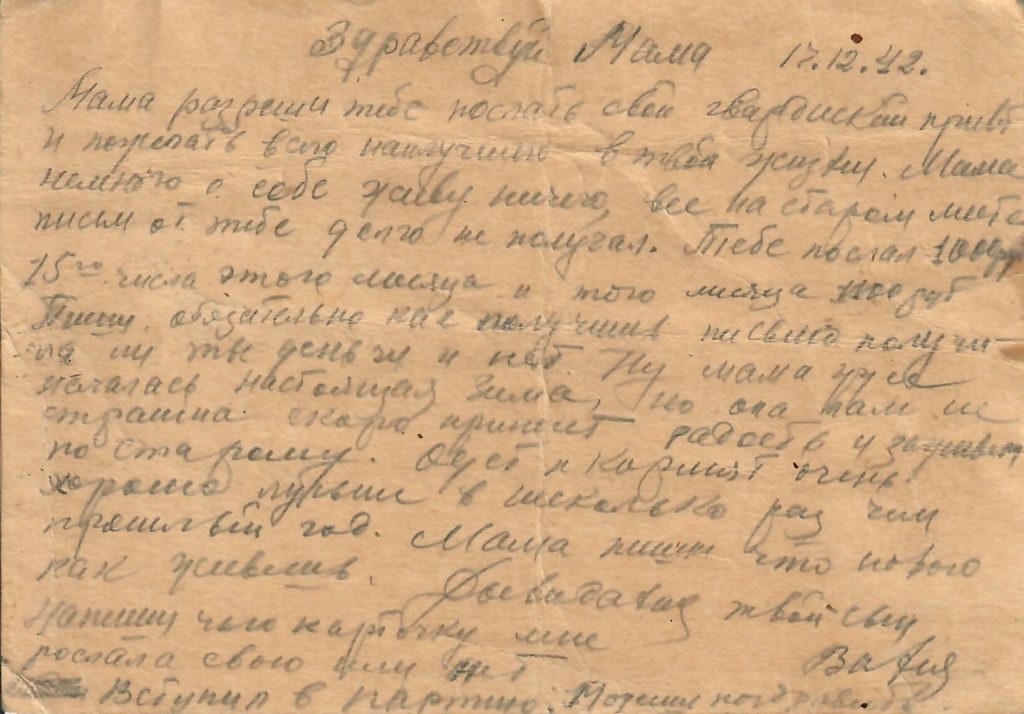 Здравствуй Мама 17.12.42.
Мама разреши тебе послать свой гвардейский привет
и пожелать всего наилучшего в твоей жизни. Мама
немного о себе живу ничего, все на старом месте
писем от тебе долго не получал. Тебе послал
15го числа этого месяца и того месяца
Пиши обязательно как получишь письмо получи-
ла ли ты деньги и нет. Ну мама уже
началась настоящая зима, но она нам не
страшна скоро принесет радость и заживем
по старому. Одет и кормят очень
хорошо лучьше в несколько раз чем
прошлый год. Мама пиши что нового
как живешь. Досвидания твой сын
Напиши чью карточку мне Ваня
послала свою или нет
Вступил в партию. Можешь поздравить.